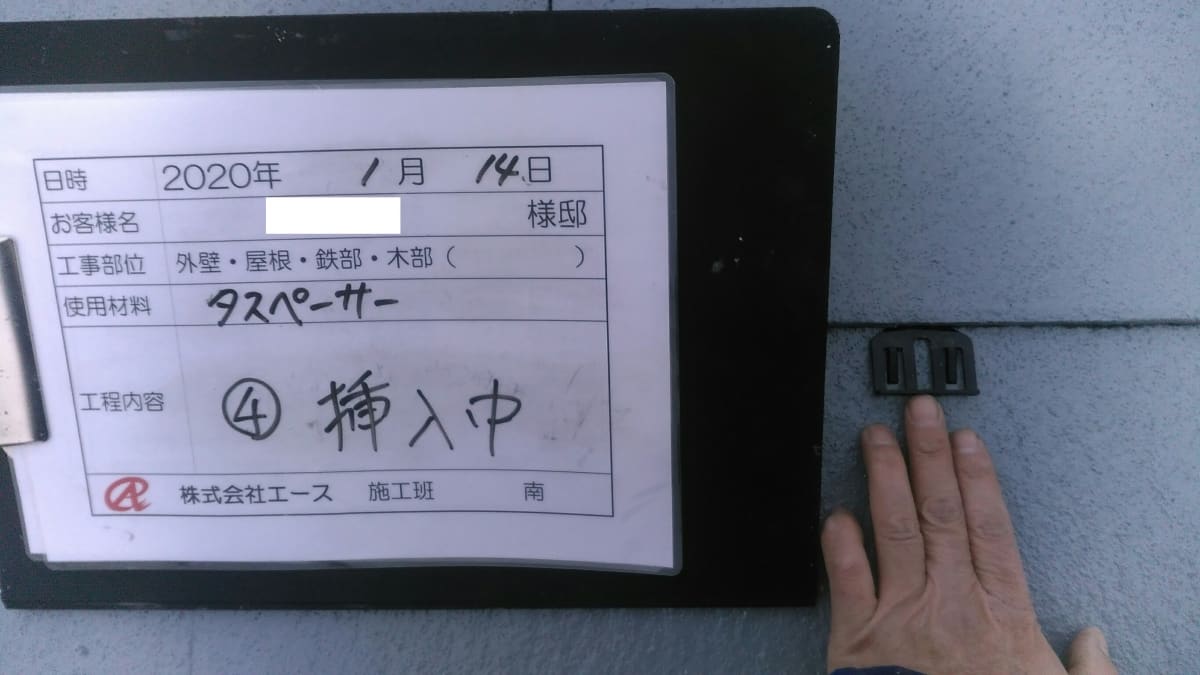 日時 2020年 1月 14日
お客様名 様邸
工事部位 外壁・屋根・鉄部・木部（ ）
使用材料 タスペーサー
工程内容 ④ 挿入中
株式会社エース 施工班 南